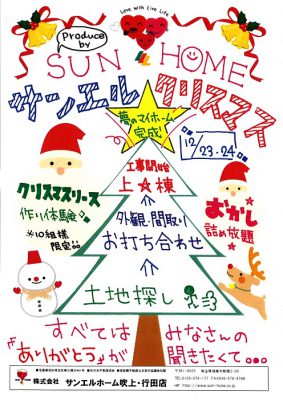 Love With Live Life
Produce by
SUN HOME
サンエルクリスマス
夢のマイホーム
完成
12/23.24
工事開始
上★棟
クリスマスリース
作り体験♪
※10組様
限定
外観・間取り
お打ち合わせ
おかし
詰め放題
土地探し
すべては みなさんの
『ありがとう』が 聞きたくて…
株式会社 サンエルホーム吹上・行田店